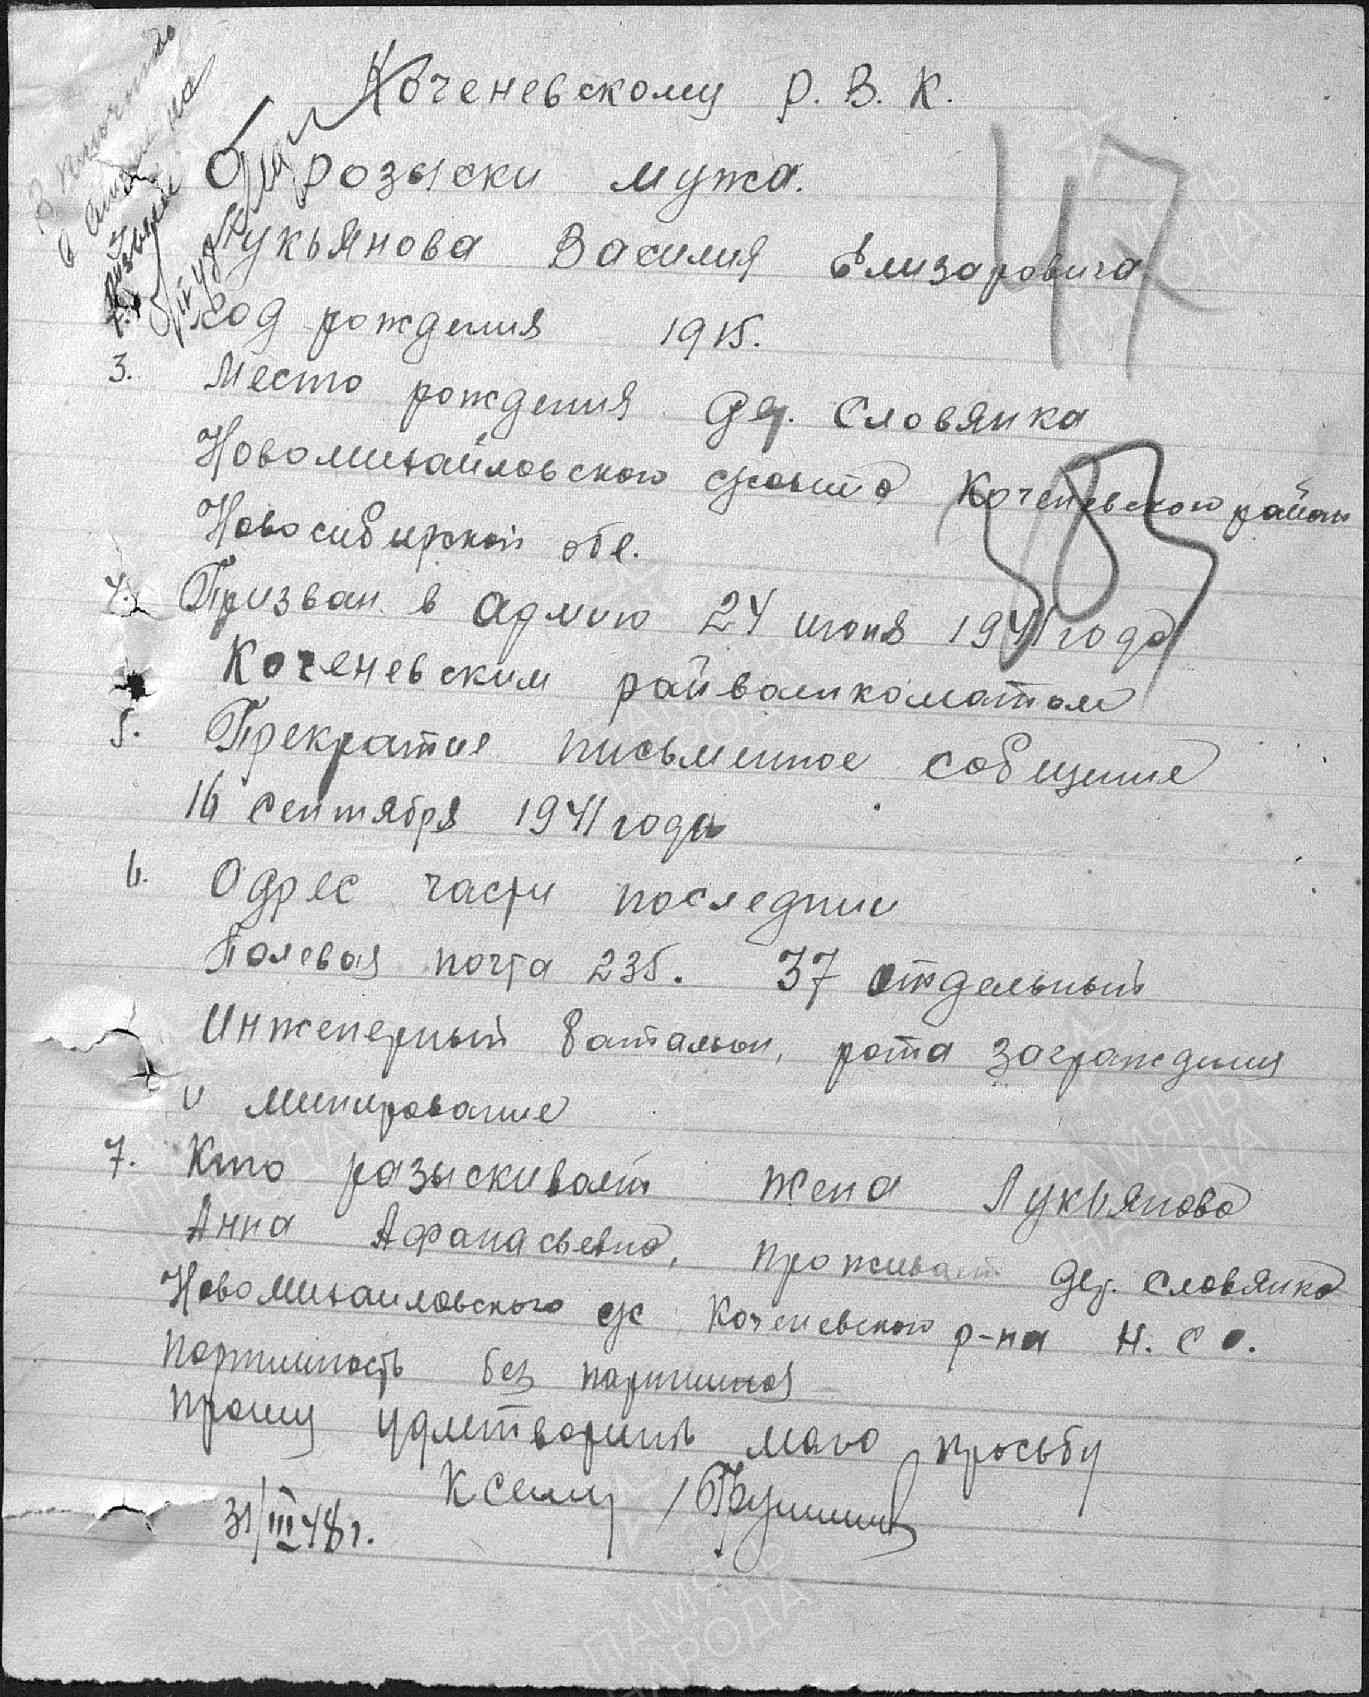 Коченевскому Р. В. К.
О розыски мужа.
Лукьянова Василия Елизаровича
год рождения 1915.
3. Место рождения дер. Словянка
Новомихайловского с/совита Коченевского район
Новосибирской обл.
4. Призван в армию 24 июня 1941 года
Коченевским райваинкоматом
5. Прекратил письменное собщение
16 сентября 1941 года
6. Одрес части последнии
Полевая почта 235. 37 отдельный
Инженерный баталион, рота заграждения
и минирование
7. Кто разыскивает жена Лукьянова
Анна Афанасьевна, проживает дер. Словянка
Новомихаиловского с/с Коченевского р-на Н. С О.
Портииность без партииная
Прошу удлетворить маю просьбу
К сему
31/III 48 г.
47
583
ПАМЯТЬ НАРОДА